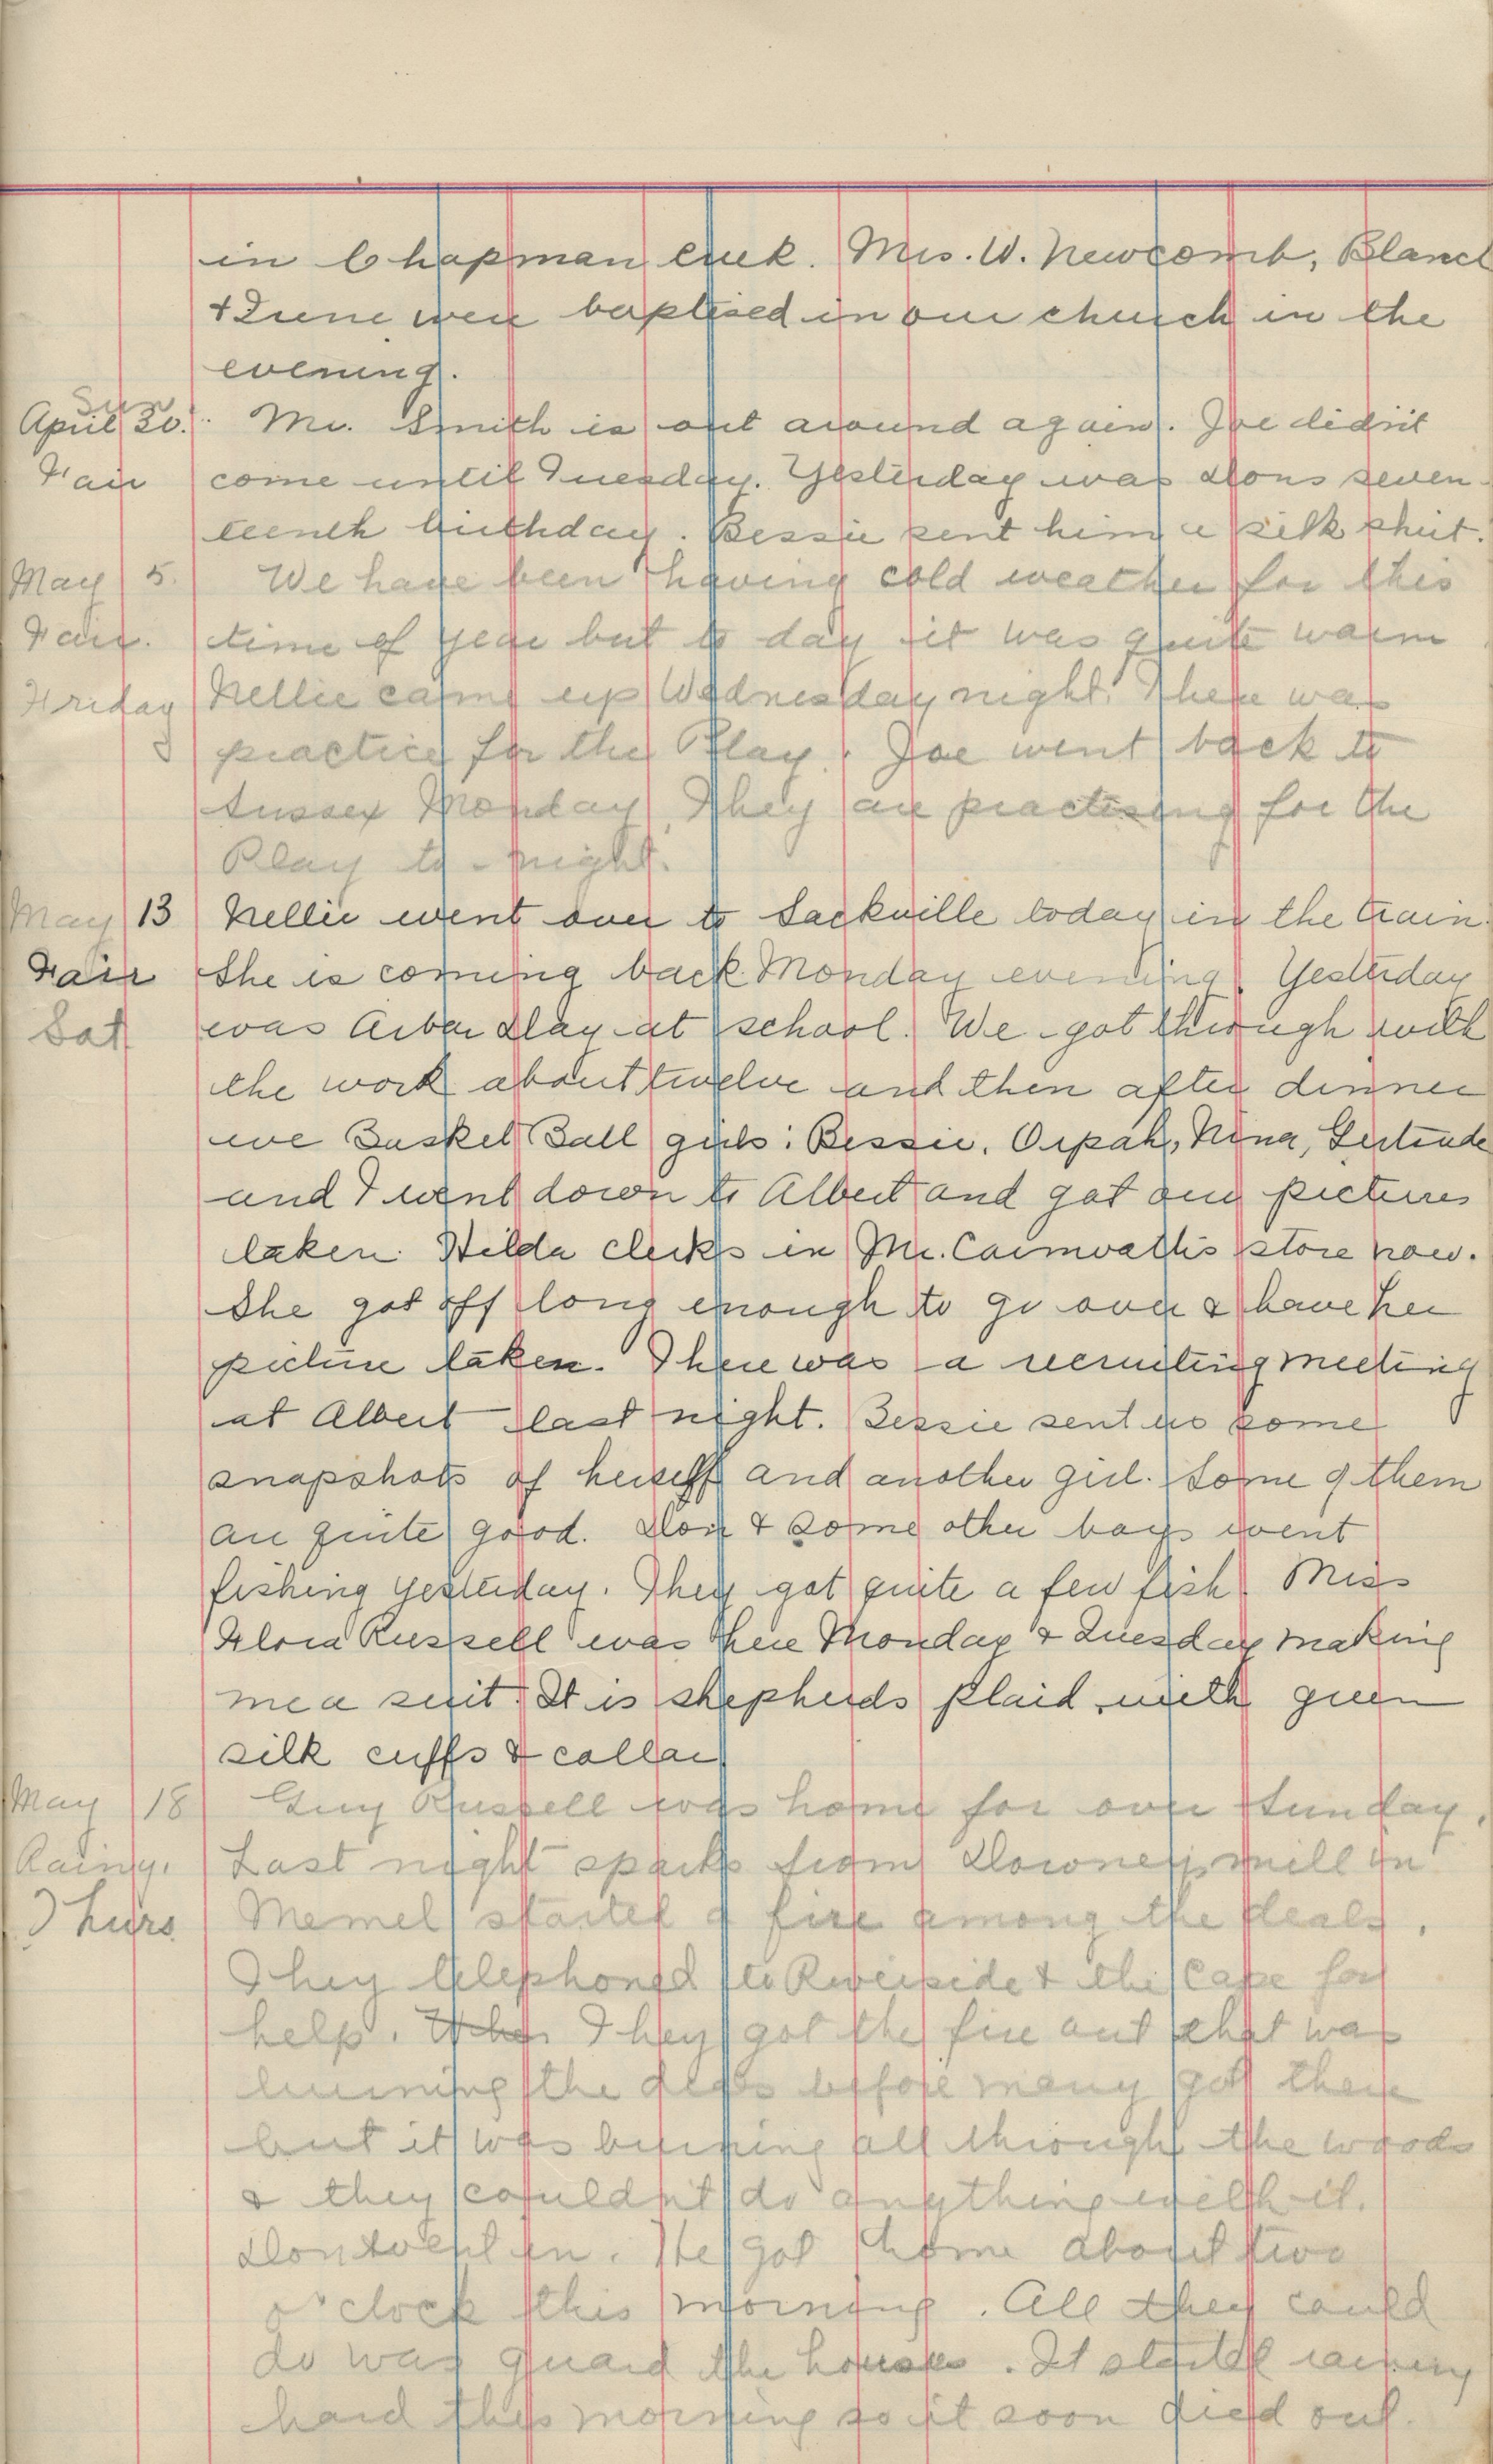 in Chapman Creek. Mrs. W. Newcomb, Blanch
+ June were baptised in our church in the
evening.
Sun
April 30. Mr. Smith is out around again. Joe didn't
Fair come until Tuesday. Yesterday was Dons seven-
teenth birthday. Bessie sent him a silk shirt.
May 5. We have been having cold weather for this
Fair. time of year but to day it was quite warm
Friday Nellie came up Wednesday night. There was
practice for the Play. Joe went back to
Sussex Monday. They are practising for the
Play to-night.
May 13 Nellie went over to Sackville today in the train.
Fair She is coming back Monday evening. Yesterday
Sat was Arbor Day at school. We got through with
the work about twelve and then after dinner
we Basket Ball girls: Bessie, Orpah, Nina, Gertrude
and I went down to Albert and got our pictures
taken. Hilda clerks in Mr. Carnwaths store now.
She got off long enough to go over & have her
picture taken. There was a recruiting meeting
at Albert last night. Bessie sent us some
snapshots of herself and another girl. Some of them
are quite good. Don + some other boys went
fishing yesterday. They got quite a few fish. Miss
Flora Russell was here Monday & Tuesday making
me a suit. It is shepherds plaid with green
silk cuffs & collar
May 18 Guy Russell was home for over Sunday.
Rainy. Last night sparks from Downeys mill in
Thurs Memel started a fire among the deals.
They telephoned to Riverside + the Cape for
help. When They got the fire out that was
burning the deals before many got there
but it was burning all through the woods
& they couldn't do anything with it.
Don went in. He got home about two
o'clock this morning. All they could
do was guard the houses. It started raining
hard this morning so it soon died out.